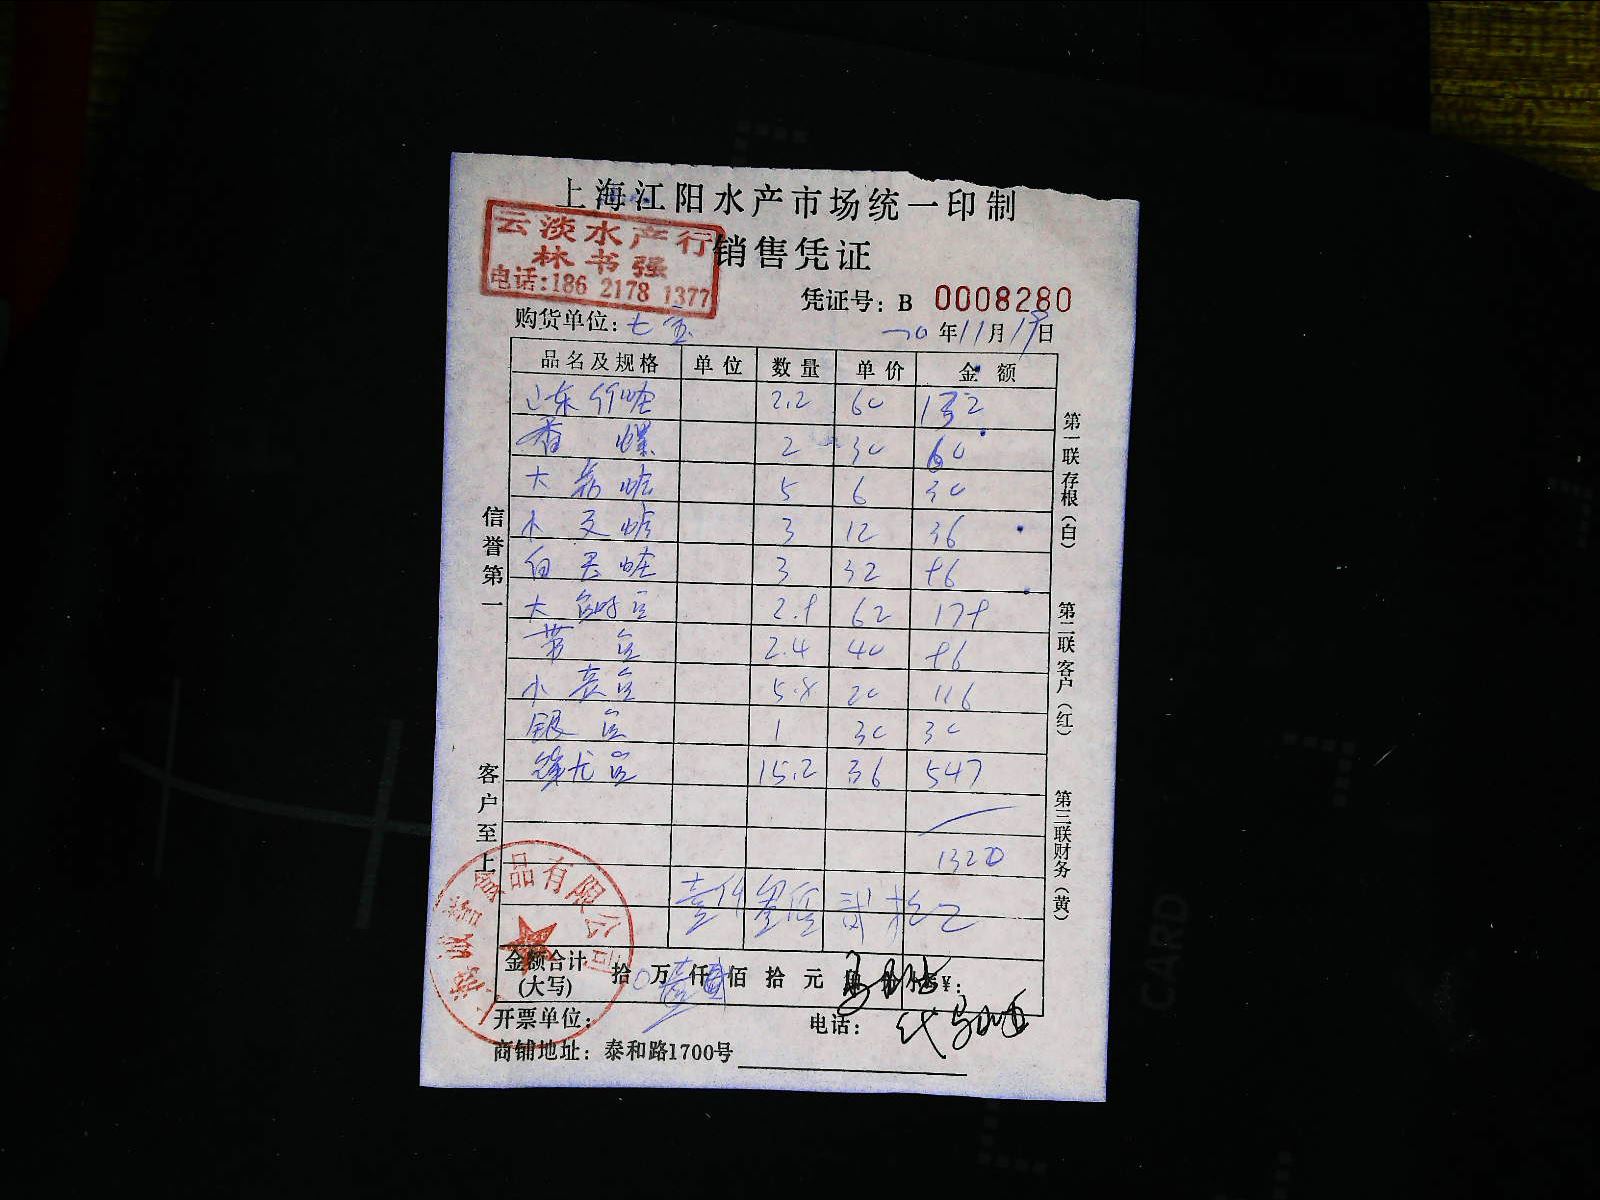 上海江阳水产市场统一印制
云淡水产行
林书强
电话:186 2178 1377
销售凭证
凭证号: B 0008280
购货单位: 七宝
20年11月19日
品名及规格 单位 数量 单价 金额
山东竹蛏 2.2 60 132
香螺 2 30 60
大 蛤 5 6 30
小 蛤 3 12 36
白 蛏 3 32 96
大 鱼 2.9 62 179
带鱼 2.4 40 96
小 鱼 5.8 20 116
银鱼 1 30 30
鱼 15.2 36 547
1322
壹仟 佰贰拾乙
金额合计 拾 万 仟 佰 拾 元 ¥:
(大写)
开票单位: 电话:
商铺地址: 泰和路1700号
信誉第一
客户至上
第一联存根(白)
第二联客户(红)
第三联财务(黄)
食品有限公司
CARD